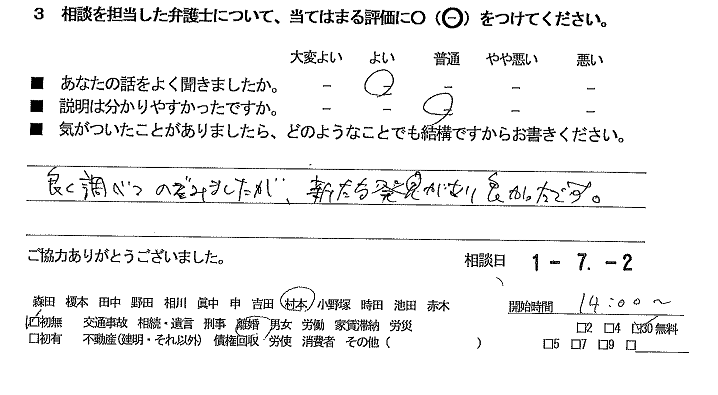 3 相談を担当した弁護士について、当てはまる評価に〇(⊖)をつけてください。
大変よい よい 普通 やや悪い 悪い
■ あなたの話をよく聞きましたか。 − − − − −
■ 説明は分かりやすかったですか。 − − − − −
■ 気がついたことがありましたら、どのようなことでも結構ですからお書きください。
良く調べつのぞみましたが、新たな発見があり良かったです。
ご協力ありがとうございました。 相談日 1-7.-2
森田 榎本 田中 野田 相川 眞中 申 吉田 村本 小野塚 時田 池田 赤木 開始時間 14:00〜
□初無 交通事故 相続・遺言 刑事 離婚 男女 労働 家賃滞納 労災 □2 □4 □30無料
□初有 不動産(建明・それ以外) 債権回収 労使 消費者 その他( ) □5 □7 □9 □